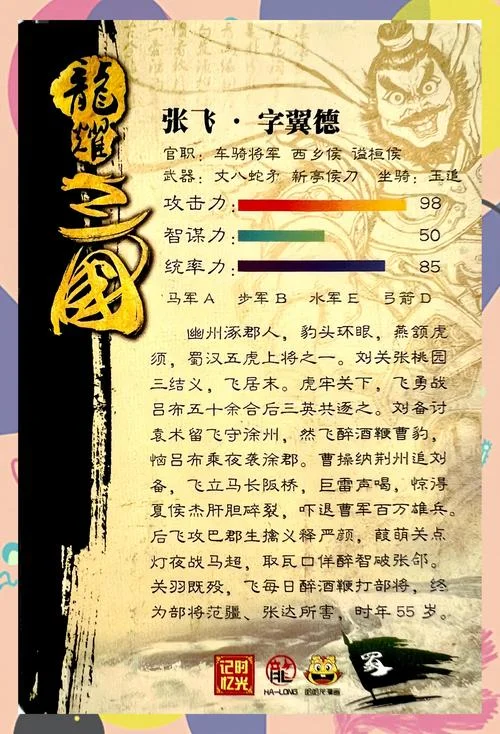 龍耀三國
张飞·字翼德
官职：车骑将军 西乡侯 谥桓侯
武器：丈八蛇矛 新亭侯刀 坐骑：玉追
攻击力： 98
智谋力： 50
统率力： 85
马军A 步军B 水军E 弓箭D
幽州涿郡人，豹头环眼，燕颔虎
须，蜀汉五虎上将之一。刘关张桃园
三结义，飞居末。虎牢关下，飞勇战
吕布五十余合后三英共逐之。刘备讨
袁术留飞守徐州，然飞醉酒鞭曹豹，
恼吕布乘夜袭徐郡。曹操纳荆州追刘
备，飞立马长阪桥，巨雷声喝，惊得
夏侯杰肝胆碎裂，吓退曹军百万雄兵。
后飞攻巴郡生擒义释严颜，葭萌关点
灯夜战马超，取瓦口佯醉智破张郃。
关羽既殁，飞每日醉酒鞭打部将，终
为部将范疆、张达所害，时年 55 岁。
记时
忆光
龍
HA-LONG
哈哈龙漫画
蜀